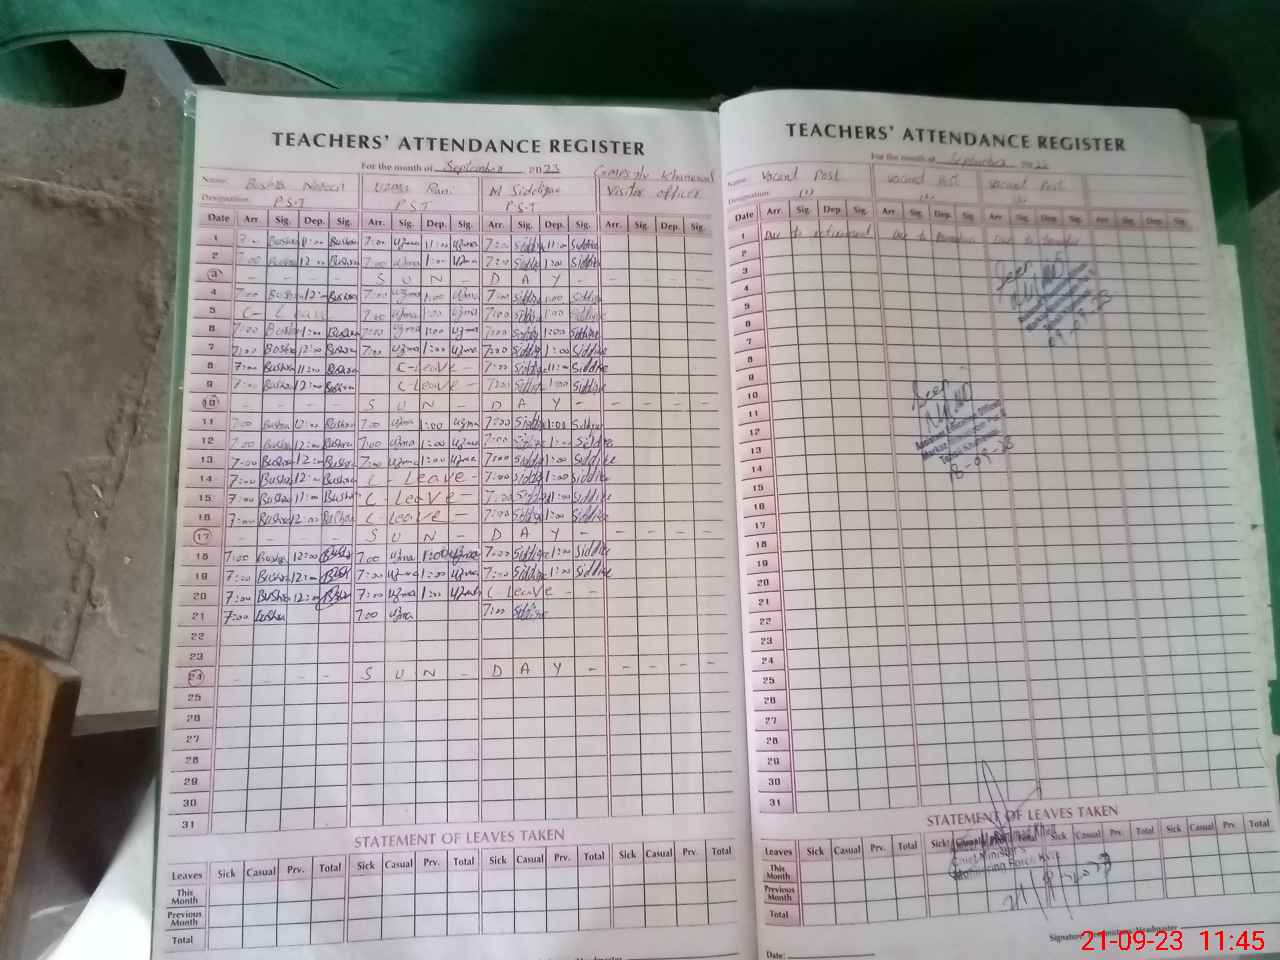 TEACHERS' ATTENDANCE REGISTER
For the month of September 2023
Name: Uzma Rani M Siddique Visitor officer
Designation: P.S.T P.S.T P.S.T
Date Arr. Sig. Dep. Sig. Arr. Sig. Dep. Sig. Arr. Sig. Dep. Sig. Arr. Sig. Dep. Sig.
1 7:00 Bushra 11:00 Bushra 7:00 uzma 11:00 uzma 7:00 Siddiqe 11:00 Siddiqe
2 7:00 Bushra 12:00 Bushra 7:00 uzma 1:00 uzma 7:00 Siddiqe 1:00 Siddiqe
3 - - - - S U N - D A Y - - - - -
4 7:00 Bushra 12:00 Bushra 7:00 uzma 1:00 uzma 7:00 Siddiqe 1:00 Siddiqe
5 C - Leave 7:00 uzma 1:00 uzma 7:00 Siddiqe 1:00 Siddiqe
6 7:00 Bushra 1:00 Bushra 7:00 uzma 1:00 uzma 7:00 Siddiqe 1:00 Siddiqe
7 7:00 Bushra 12:00 Bushra 7:00 uzma 1:00 uzma 7:00 Siddiqe 1:00 Siddiqe
8 7:00 Bushra 11:00 Bushra C - Leave - 7:00 Siddiqe 11:00 Siddiqe
9 7:00 Bushra 12:00 Bushra C - Leave - 7:00 Siddiqe 1:00 Siddiqe
10 - - - - S U N - D A Y - - - - -
11 7:00 Bushra 12:00 Bushra 7:00 uzma 1:00 uzma 7:00 Siddiqe 1:00 Siddiqe
12 7:00 Bushra 12:00 Bushra 7:00 uzma 1:00 uzma 7:00 Siddiqe 1:00 Siddiqe
13 7:00 Bushra 12:00 Bushra 7:00 uzma 1:00 uzma 7:00 Siddiqe 1:00 Siddiqe
14 7:00 Bushra 12:00 Bushra C - Leave - 7:00 Siddiqe 1:00 Siddiqe
15 7:00 Bushra 11:00 Bushra C - Leave - 7:00 Siddiqe 11:00 Siddiqe
16 7:00 Bushra 12:00 Bushra C - Leave - 7:00 Siddiqe 1:00 Siddiqe
17 - - - - S U N - D A Y - - - - -
18 7:00 Bushra 12:00 7:00 uzma 1:00 uzma 7:00 Siddiqe 1:00 Siddiqe
19 7:00 Bushra 12:00 7:00 uzma 1:00 uzma 7:00 Siddiqe 1:00 Siddiqe
20 7:00 Bushra 12:00 7:00 uzma 1:00 uzma C - Leave - -
21 7:00 Bushra 7:00 uzma 7:00 Siddiqe
22
23
24 - - - - S U N - D A Y - - - - -
25
26
27
28
29
30
31
STATEMENT OF LEAVES TAKEN
Leaves Sick Casual Prv. Total Sick Casual Prv. Total Sick Casual Prv. Total Sick Casual Prv. Total
This Month
Previous Month
Total
TEACHERS' ATTENDANCE REGISTER
For the month of September
Name: Vacant Post Vacant Post Vacant Post
Designation:
Date Arr. Sig. Dep. Sig. Arr. Sig. Dep. Sig. Arr Sig. Dep. Sig. Arr Sig. Dep. Sig.
1 Due to retirement Due to Due to
2
3 Seen
4
5
6
7 09-09-23
8
9 Seen
10
11
12
13
14 18-09-23
15
16
17
18
19
20
21
22
23
24
25
26
27
28
29
30
31
STATEMENT OF LEAVES TAKEN
Leaves Sick Casual Prv. Total Sick Casual Prv. Total Sick Casual Prv. Total Sick Casual Prv. Total
This Month
Chief Minister's
Monitoring Force
Previous Month
Total
Date:
21-09-23 11:45